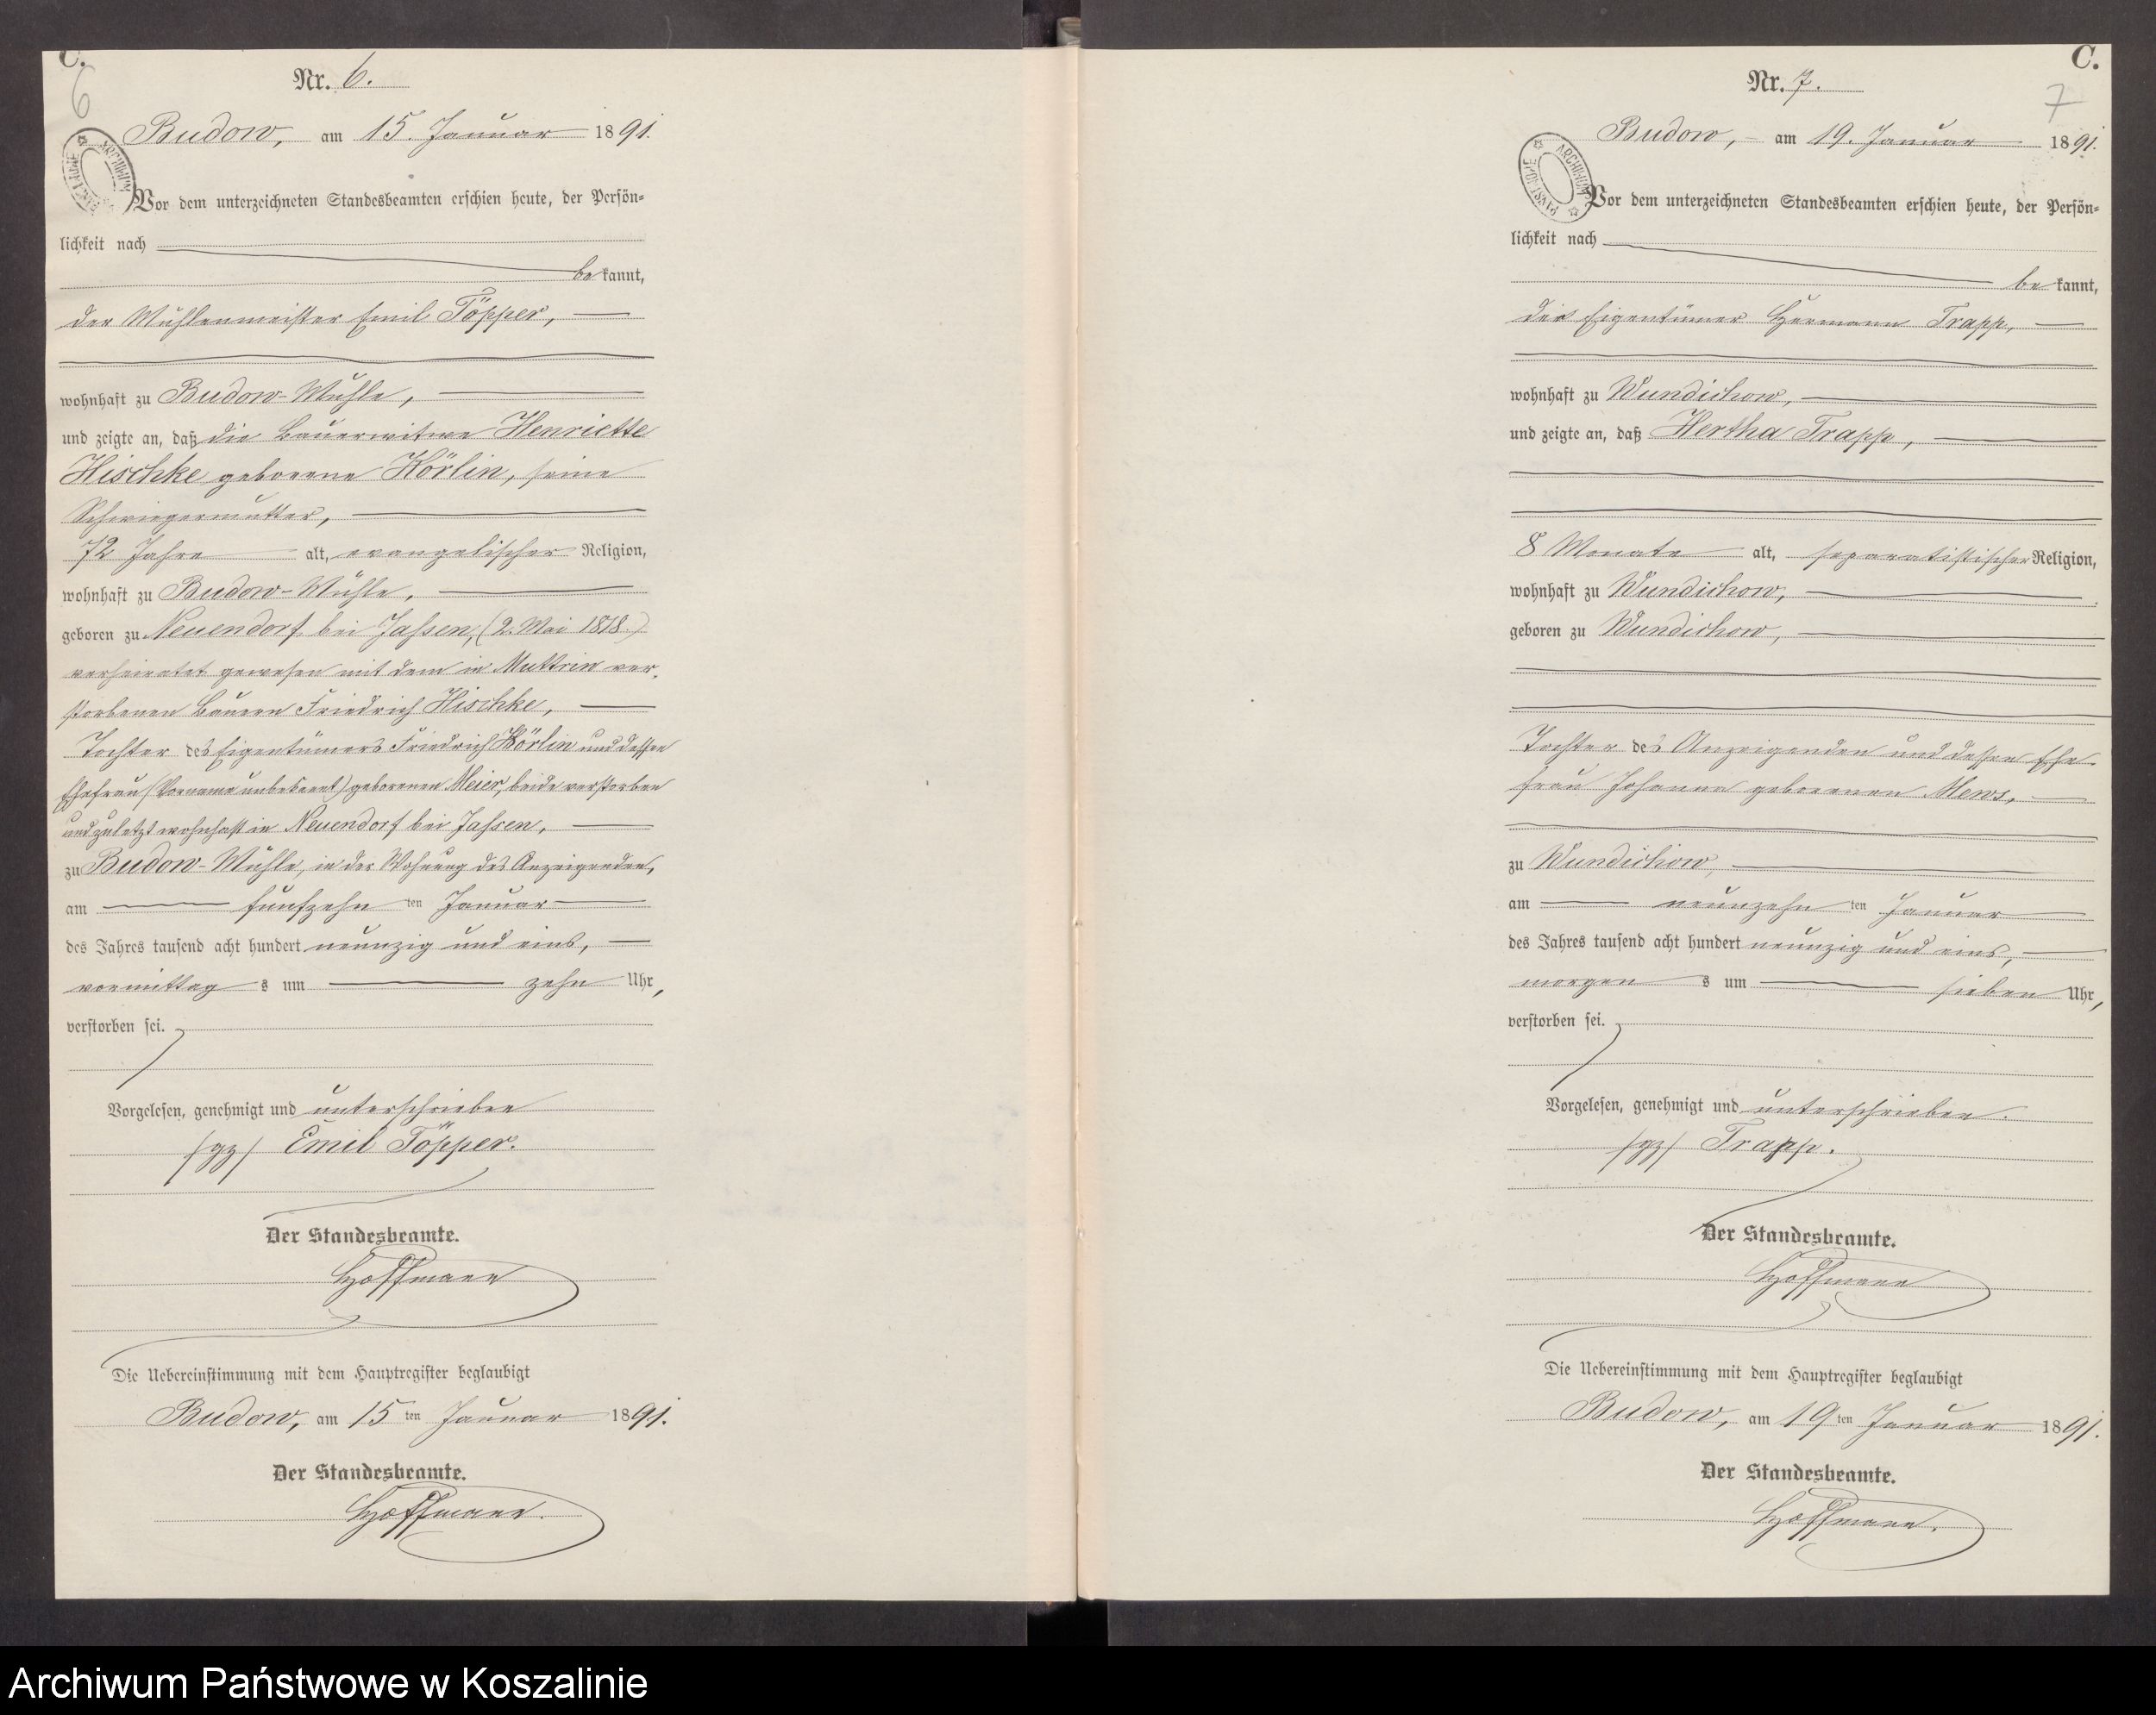 C.
6
Nr. 6.
Budow, am 15. Januar 1891.
Vor dem unterzeichneten Standesbeamten erschien heute, der Persön-
lichkeit nach
be kannt,
der Mühlenmeister Emil Töpper,
wohnhaft zu Budow-Mühle,
und zeigte an, daß die Bauerwitwe Henriette
Hischke geborene Körlin, seine
Schwiegermutter,
72 Jahre alt, evangelischer Religion,
wohnhaft zu Budow-Mühle,
geboren zu Neuendorf bei Jassen, (2. Mai 1818.)
verheiratet gewesen mit dem in Muttrin ver-
storbenen Bauern Friedrich Hischke,
Tochter des Eigentümers Friedrich Körlin und dessen
Ehefrau (Vorname unbekannt) geborenen Meier, beide verstorben
und zuletzt wohnhaft in Neuendorf bei Jassen,
zu Budow-Mühle, in der Wohnung des Anzeigenden,
am fünfzehn ten Januar
des Jahres tausend acht hundert neunzig und eins,
vormittag s um zehn Uhr,
verstorben sei.
Vorgelesen, genehmigt und unterschrieben
/gz/ Emil Töpper.
Der Standesbeamte.
Hoffmann
Die Uebereinstimmung mit dem Hauptregister beglaubigt
Budow, am 15 ten Januar 1891.
Der Standesbeamte.
Hoffmann.
C.
7
Nr. 7.
Budow, am 19. Januar 1891.
ARCHIWUM PAŃSTWOWE
Vor dem unterzeichneten Standesbeamten erschien heute, der Persön-
lichkeit nach
be kannt,
der Eigentümer Hermann Trapp,
wohnhaft zu Wundichow,
und zeigte an, daß Hertha Trapp,
8 Monate alt, separatistischer Religion,
wohnhaft zu Wundichow,
geboren zu Wundichow,
Tochter des Anzeigenden und dessen Ehe-
frau Johanna geborenen Mews,
zu Wundichow,
am neunzehn ten Januar
des Jahres tausend acht hundert neunzig und eins,
morgen s um sieben Uhr,
verstorben sei.
Vorgelesen, genehmigt und unterschrieben.
/gz/ Trapp.
Der Standesbeamte.
Hoffmann
Die Uebereinstimmung mit dem Hauptregister beglaubigt
Budow, am 19 ten Januar 1891.
Der Standesbeamte.
Hoffmann.
Archiwum Państwowe w Koszalinie